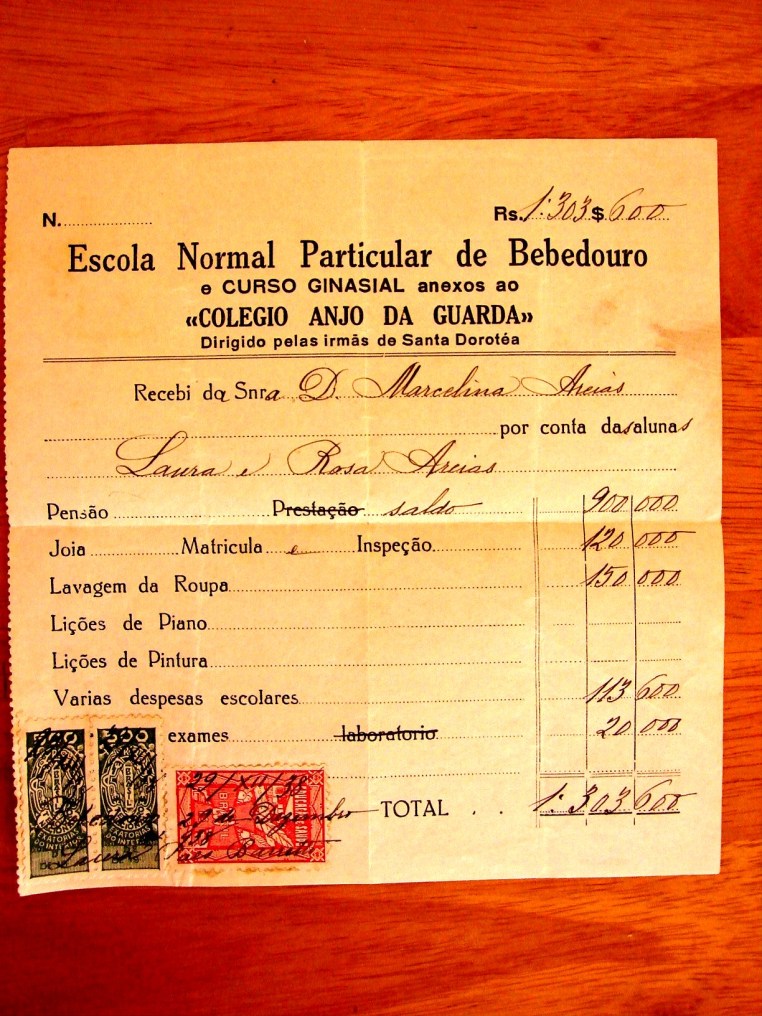 N. Rs. 1:303$600
Escola Normal Particular de Bebedouro
e CURSO GINASIAL anexos ao
«COLEGIO ANJO DA GUARDA»
Dirigido pelas irmãs de Santa Dorotéa
Recebi da Snra D. Marcelina Areias
por conta das alunas
Laura e Rosa Areias
Pensão Prestação saldo 900 000
Joia Matricula e Inspeção 120 000
Lavagem da Roupa 150 000
Lições de Piano
Lições de Pintura
Varias despesas escolares 113 600
exames laboratorio 20 000
29/XII/38
29 de Dezembro TOTAL . . 1:303 600
Laura Barreto
BRASIL
EXATORIAS
EXATORIAS